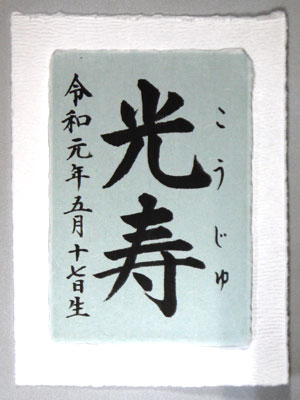 こうじゅ
光寿
令和元年五月十七日生